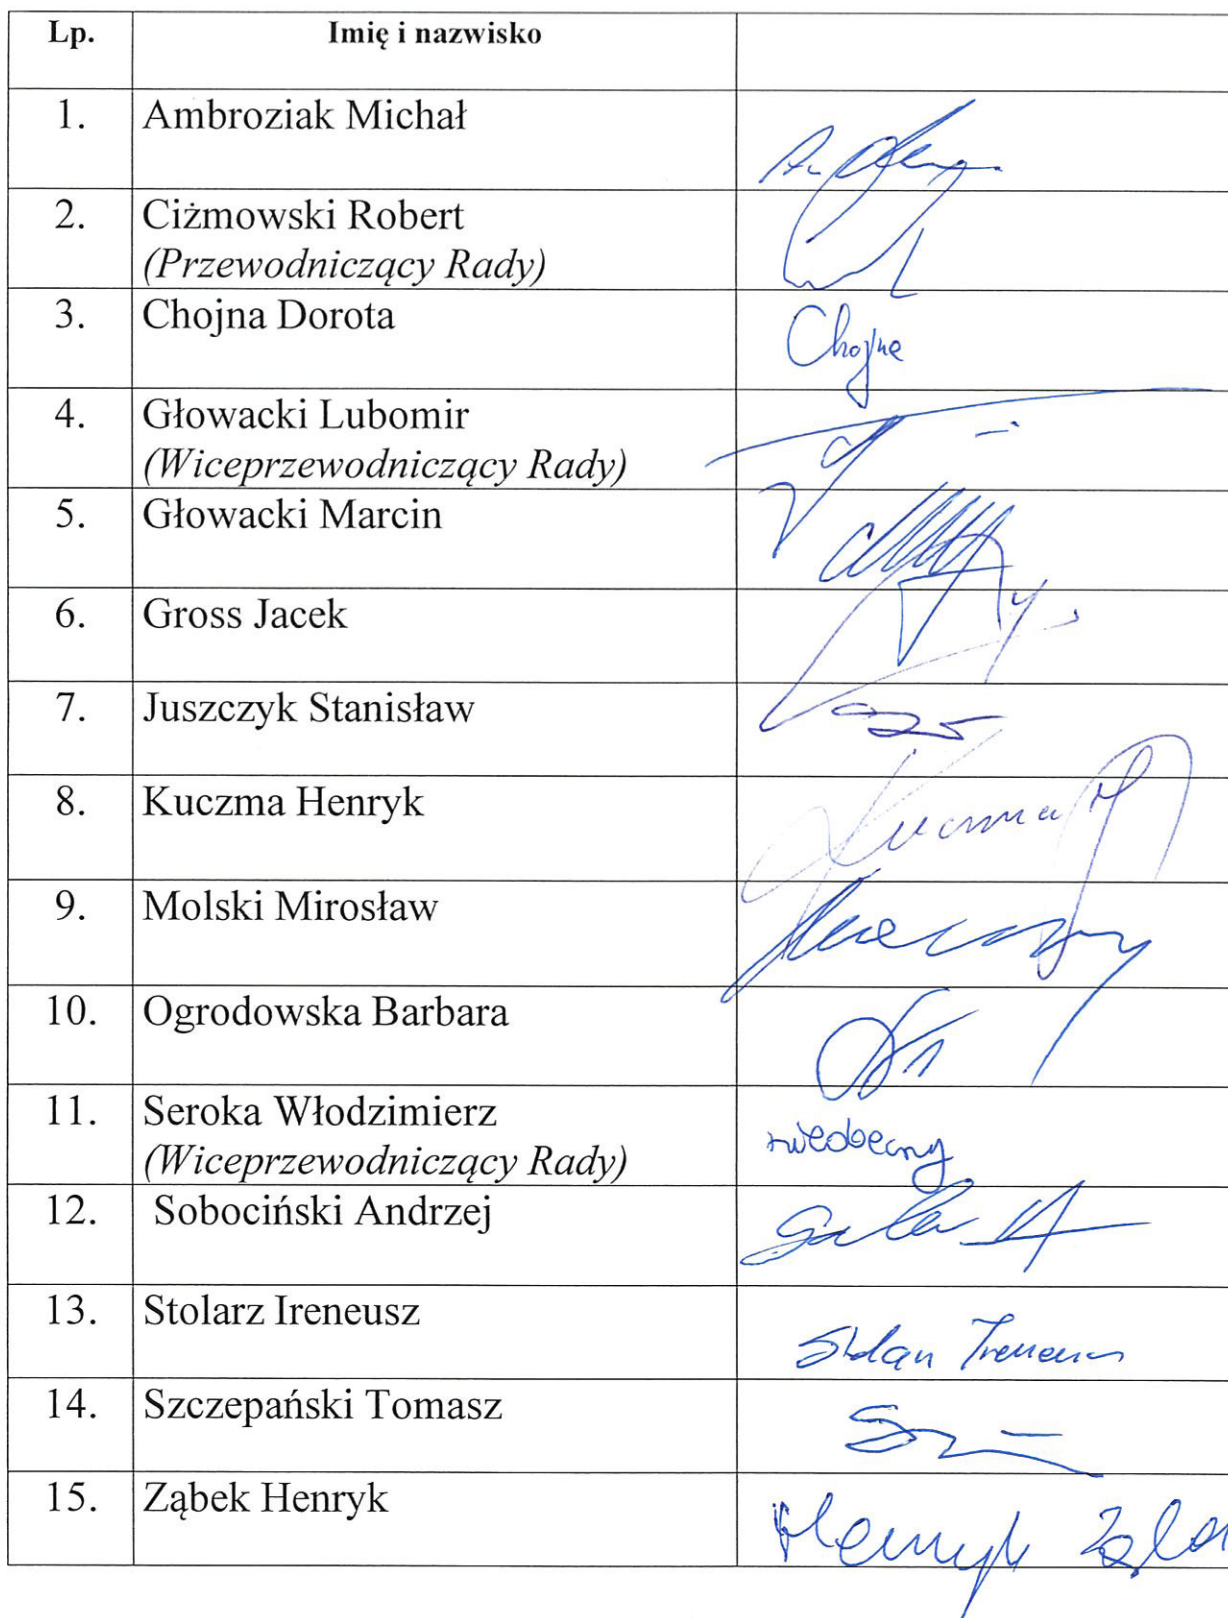 Lp. Imię i nazwisko
1. Ambroziak Michał
2. Ciżmowski Robert
(Przewodniczący Rady)
3. Chojna Dorota
Chojna
4. Głowacki Lubomir
(Wiceprzewodniczący Rady)
5. Głowacki Marcin
6. Gross Jacek
7. Juszczyk Stanisław
8. Kuczma Henryk
9. Molski Mirosław
10. Ogrodowska Barbara
11. Seroka Włodzimierz
(Wiceprzewodniczący Rady)
nieobecny
12. Sobociński Andrzej
13. Stolarz Ireneusz
14. Szczepański Tomasz
15. Ząbek Henryk
Henryk